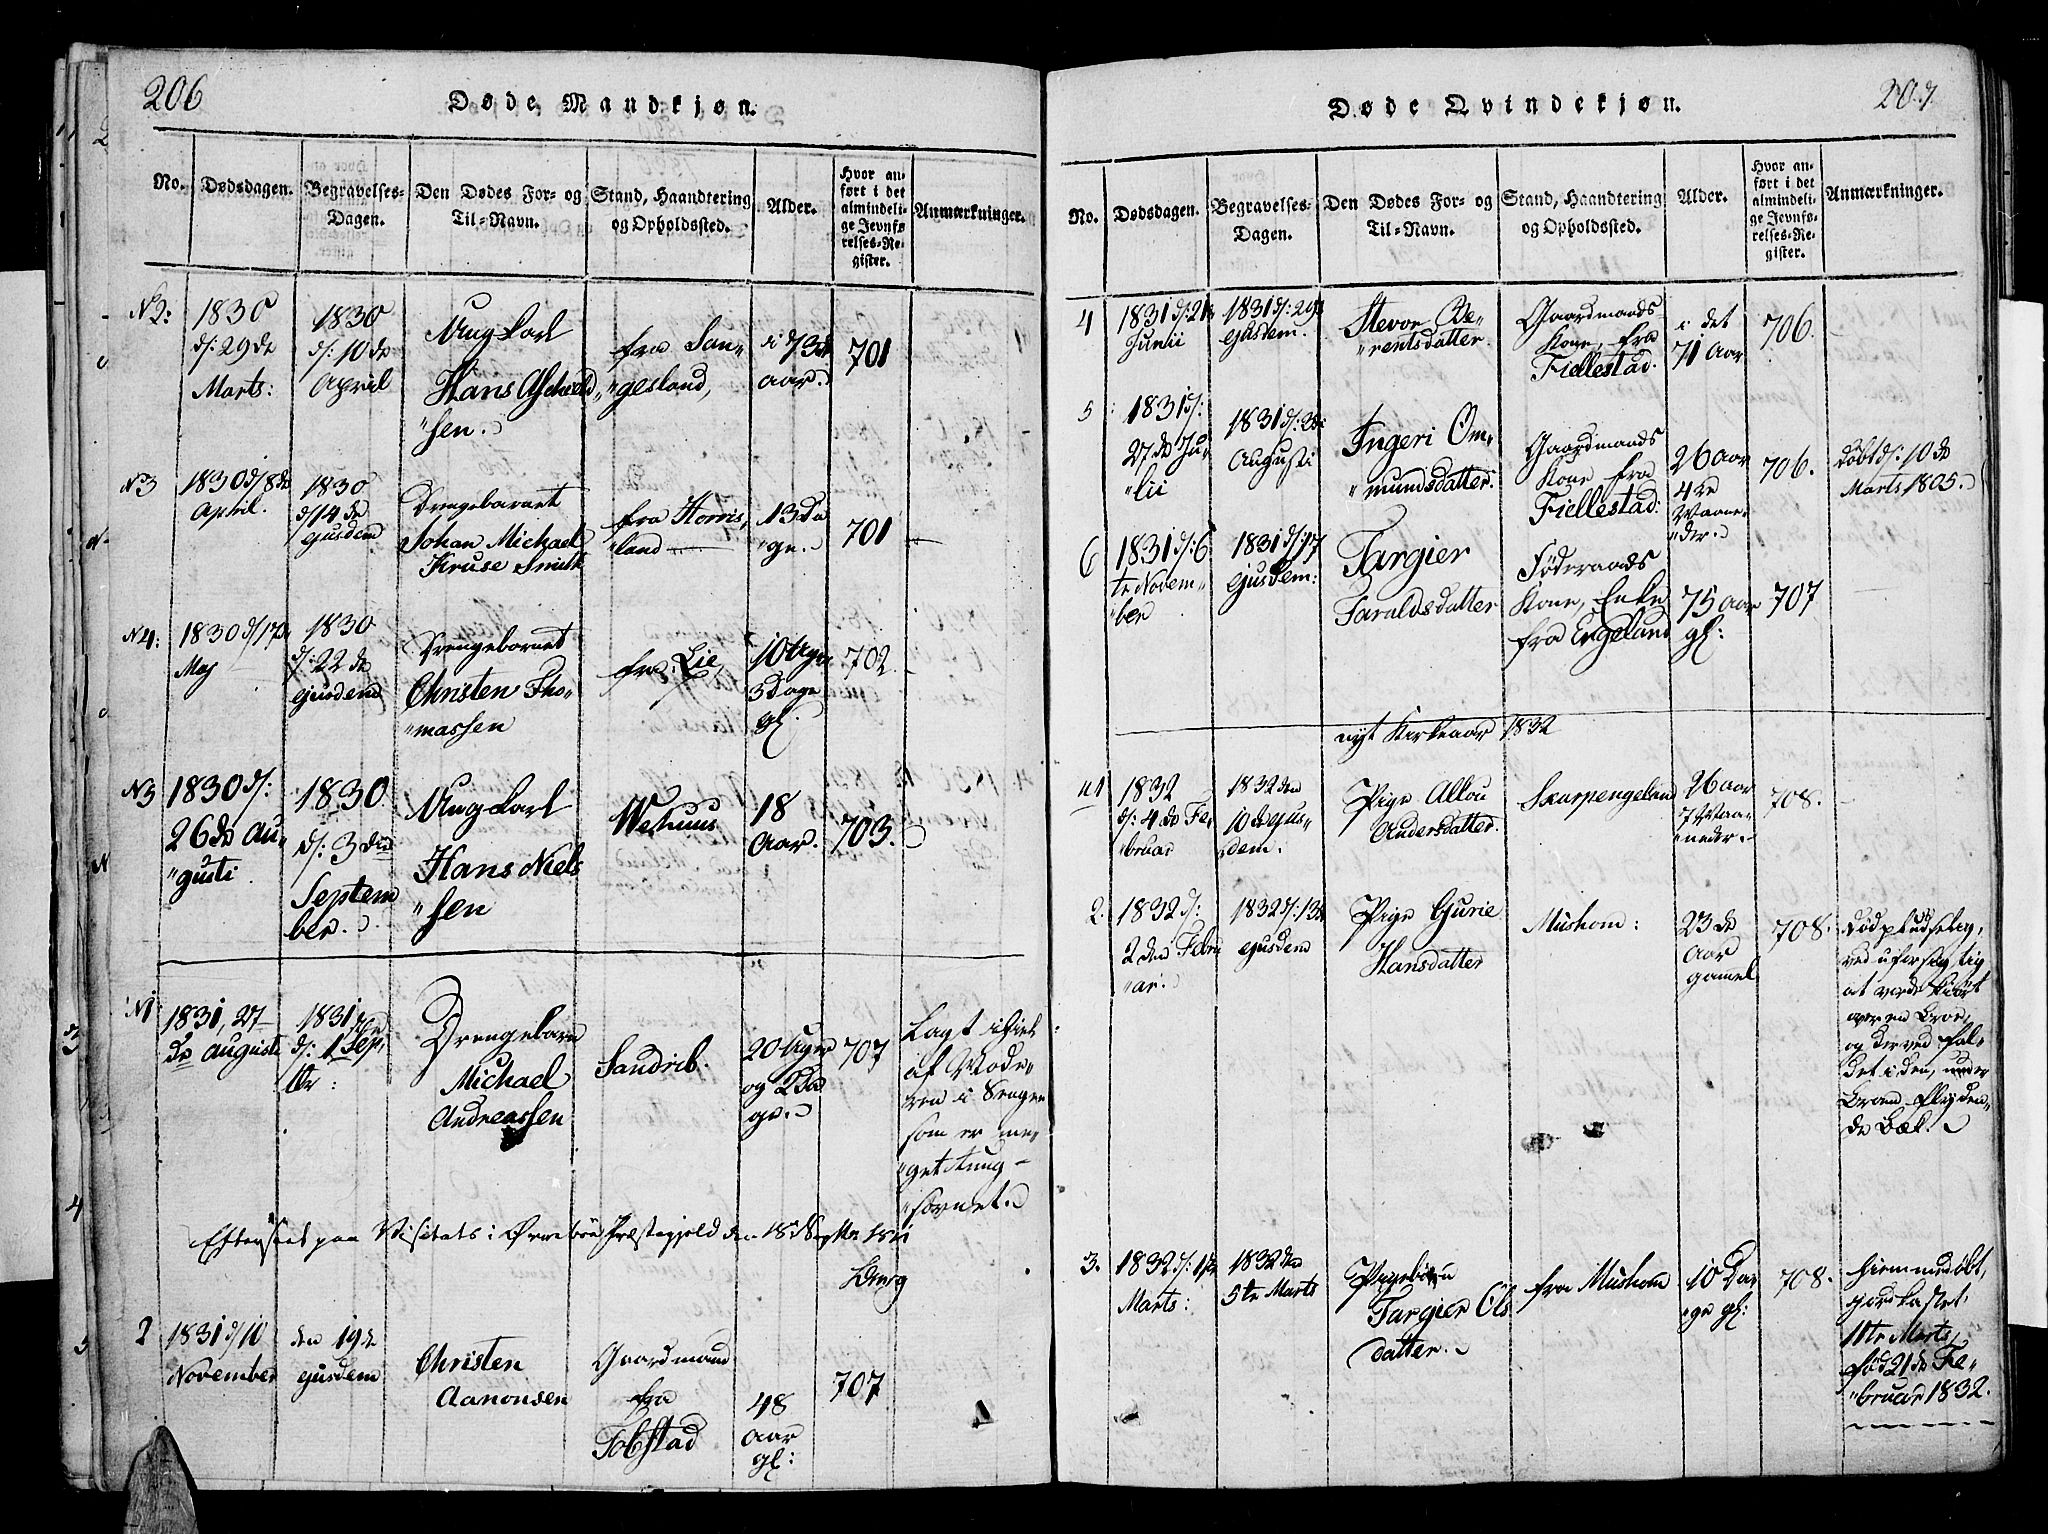 206
Døde Mandkjøn.
No.
Dødsdagen.
Begravelses-
Dagen.
Den Dødes For- og
Til-Navn.
Stand, Haandtering
og Opholdssted.
Alder.
Hvor an-
ført i det
almindeli-
ge Jevnfø-
relses-Re-
gister.
Anmærkninger.
N2:
1830
d: 29de
Marts:
1830
d: 10de
April
Ungkarl
Hans
"sen.
fra Lan-
"gesland,
i 73de
aar.
701
No 3
1830 d/8de
April.
1830
d/14de
ejusdem
Drengebarnet
Johan Michael
Kruse Smith
fra Horris-
"land
13 Da
"ge.
701
N4:
1830 d/17de
Maj
1830
d: 22de
ejusdem
Drengebarnet
Christen Tho-
"massen
fra Lie
10 Uger
3 Dage
gl.
702
N3
1830 d:
26de Au-
"gusti
1830
d: 3die
Septem
ber.
Ungkarl
Hans Niels
"sen
Wehuus
18
Aar.
703.
N1
1831, 27
de augusti
1831
d: 1 Sep-
tbr:
Drengebarn
Michael
Andreassen
Sandrib.
20 Uger
og 2 Da
ge.
707
Lagt ihiel
af Mode-
ren i Sengen
som er me-
"get tung-
"sovnet.
Efterseet paa Visitats i Øvrebøe Præstegjeld den 18de Septbr 1831
2
1831 d/10
November
den 19de
ejusdem
Christen
Aanonsen
Gaardmand
fra
Tobstad
48
aar
gl:
707
207.
Døde Qvindekjøn.
No.
Dødsdagen.
Begravelses-
Dagen.
Den Dødes For- og
Til-Navn.
Stand, Haandtering
og Opholdssted.
Alder.
Hvor an-
ført i det
almindeli-
ge Jevnfø-
relses-Re-
gister.
Anmærkninger.
4
1831 d: 21de
Junii
1831 d: 29de
ejusdem.
Stevor Be-
"rentsdatter.
Gaardmands
Kone, fra
Fiellestad.
i det
71 Aar
706.
5
1831 d:
27de Ju-
"lii
1831 d: 3de
Augusti
Ingeri Om-
"mundsdatter.
Gaardmands
Kone fra
Fiellestad:
26 Aar
4re
Maane-
"der.
706.
døbt d: 10de
Marts 1805.
6
1831 d: 6
te Novem-
ber
1831 d/17
ejusdem:
Targier
Taraldsdatter
Føderaads
Kone, Enke
fra Engeland
75 aar
gl:
707
nyt Kirkeaar 1832
n1
1832
d: 4de Fe-
"bruar
1832 den
10de ejus-
dem.
Pige Allou
Andersdatter.
Skarpengeland
26 aar
7 Maa-
neder.
708.
2.
1832 d:
2den Febru
"ar.
1832 d: 13de
ejusdem
Pige Gurie
Hansdatter
Mushom:
23de
aar
gamel
708.
død pludselig,
ved uforsigtig
at være kiørt
over en Broe,
og derved fal-
det i den, under
Broen flyden-
de Bæk.
3.
1832 d: 1ste
Marts:
1832 den
5te Marts
Pigebarn
Targier Ols
datter.
fra Mushom
10 Da-
"ge gl:
708.
hiemmedøbt,
jordkastet
11te Marts,
fød 21de Fe-
"bruar 1832.